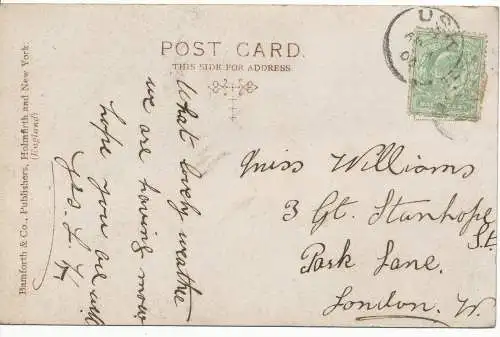 POST CARD.
THIS SIDE FOR ADDRESS
Bamforth & Co., Publishers, Holmfirth and New York.
(England)
What lovely weather
we are having now
hope you are well
yrs.
Miss Williams
3 Gt. Stanhope
St.
Park Lane.
London. W.